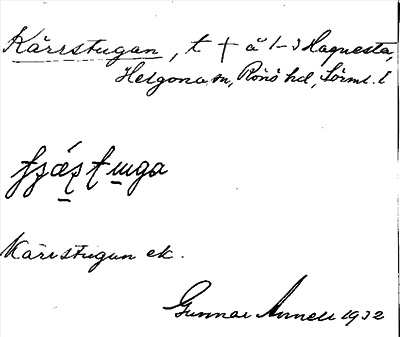 Kärrstugan, t † å 1-3 Haguesta,
Helgona sn, Rönö hd, Sörml. l
Kärrstugan ek.
Gunnar Annell 1932